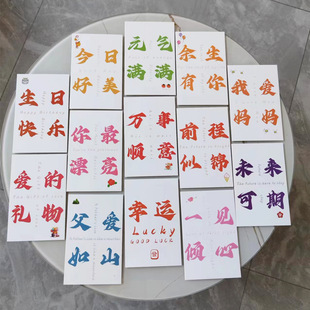 今日
好美
元气
满满
余生
有你
生日
快乐
我爱
妈妈
你最
漂亮
万事
顺意
前程
似锦
爱的
礼物
未来
可期
父爱
如山
幸运
Lucky
GOOD LUCK
一见
倾心